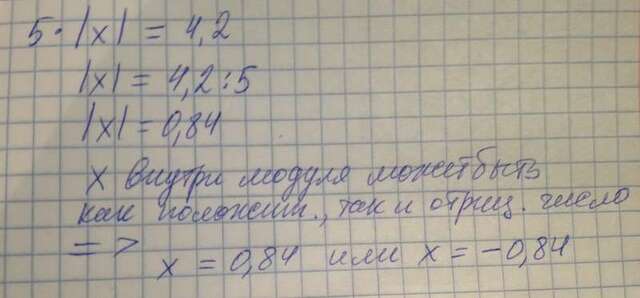 5·|x| = 4,2
|x| = 4,2:5
|x| = 0,84
x внутри модуля может быть
как положит., так и отриц. число
=>
x = 0,84 или x = -0,84